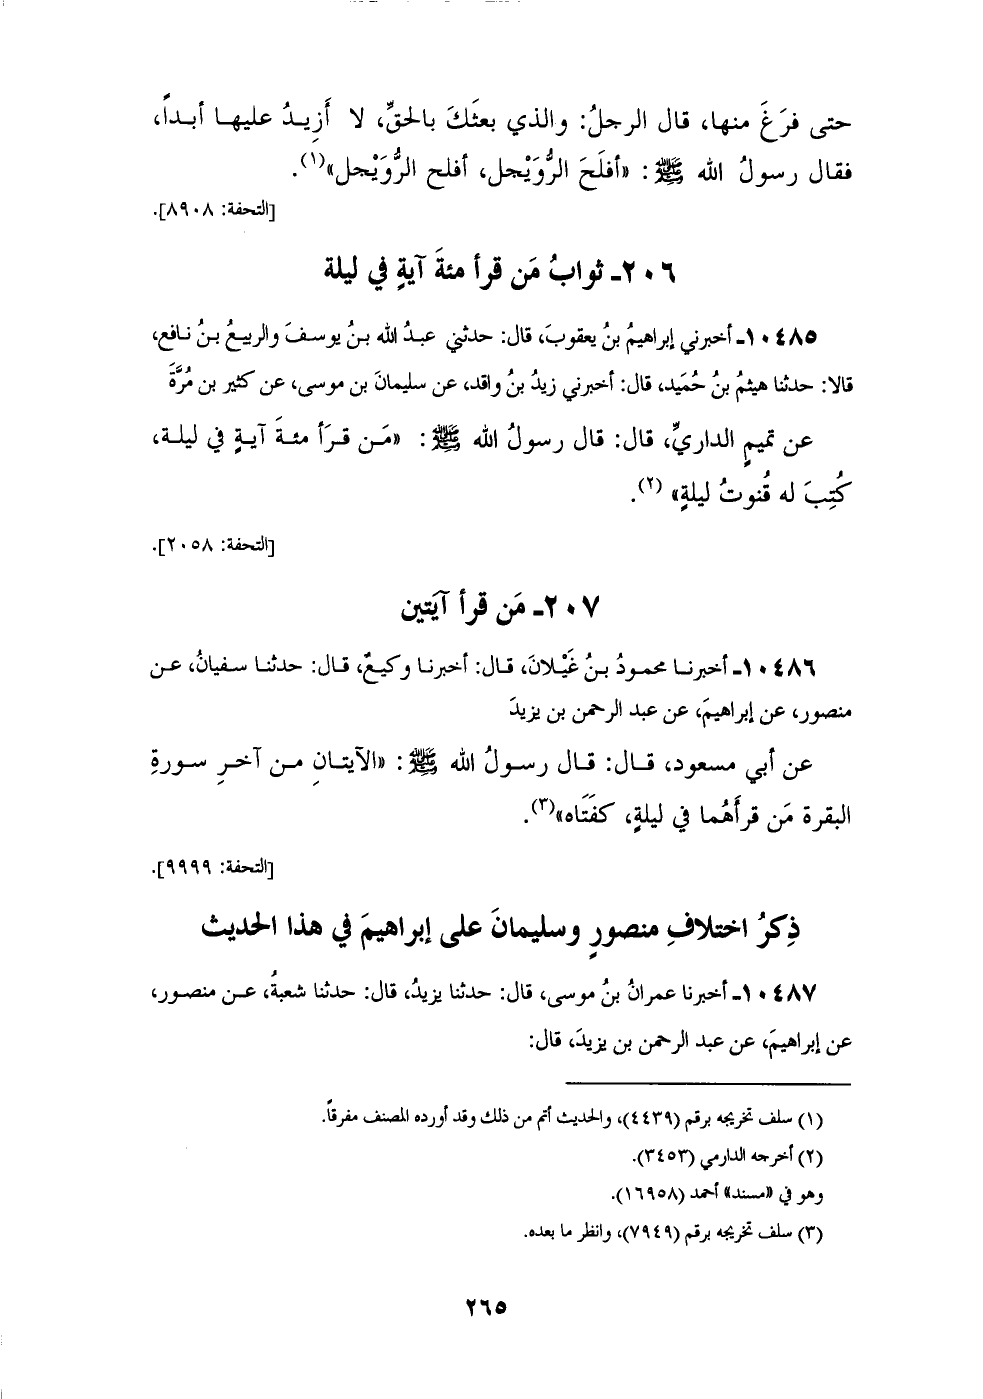 حتى فرَغَ منها، قال الرجلُ: والذي بعثَكَ بالحقِّ، لا أَزِيدُ عليها أبداً،
فقال رسولُ الله ﷺ: «أفلَحَ الرُّوَيْجل، أفلح الرُّوَيْجل»(١).
[التحفة: ٨٩٠٨].
٢٠٦ـ ثوابُ مَن قرأ مئةَ آيةٍ في ليلة
١٠٤٨٥ـ أخبرني إبراهيمُ بنُ يعقوبَ، قال: حدثني عبدُ الله بنُ يوسفَ والربيعُ بنُ نافع،
قالا: حدثنا هيثمُ بنُ حُمَيد، قال: أخبرني زيدُ بنُ واقد، عن سليمانَ بن موسى، عن كثير بن مُرَّةَ
عن تميمٍ الداريِّ، قال: قال رسولُ الله ﷺ: «مَن قرَأ مئةَ آيةٍ في ليلة،
كُتِبَ له قُنوتُ ليلةٍ» (٢).
[التحفة: ٢٠٥٨].
٢٠٧ـ مَن قرأ آيَتين
١٠٤٨٦ـ أخبرنا محمودُ بنُ غَيْلانَ، قال: أخبرنا وكيعٌ، قال: حدثنا سفيانُ، عن
منصور، عن إبراهيمَ، عن عبد الرحمن بن يزيدَ
عن أبي مسعود، قال: قال رسولُ الله ﷺ: «الآيتانِ من آخرِ سورةِ
البقرة مَن قرأَهُما في ليلةٍ، كفَتَاه»(٣).
[التحفة: ٩٩٩٩].
ذِكرُ اختلافِ منصورٍ وسليمانَ على إبراهيمَ في هذا الحديث
١٠٤٨٧ـ أخبرنا عمرانُ بنُ موسى، قال: حدثنا يزيدُ، قال: حدثنا شعبةُ، عن منصور،
عن إبراهيمَ، عن عبد الرحمن بن يزيدَ، قال:
(١) سلف تخريجه برقم (٤٤٣٩)، والحديث أتم من ذلك وقد أورده المصنف مفرقاً.
(٢) أخرجه الدارمي (٣٤٥٣).
وهو في «مسند» أحمد (١٦٩٥٨).
(٣) سلف تخريجه برقم (٧٩٤٩)، وانظر ما بعده.
٢٦٥